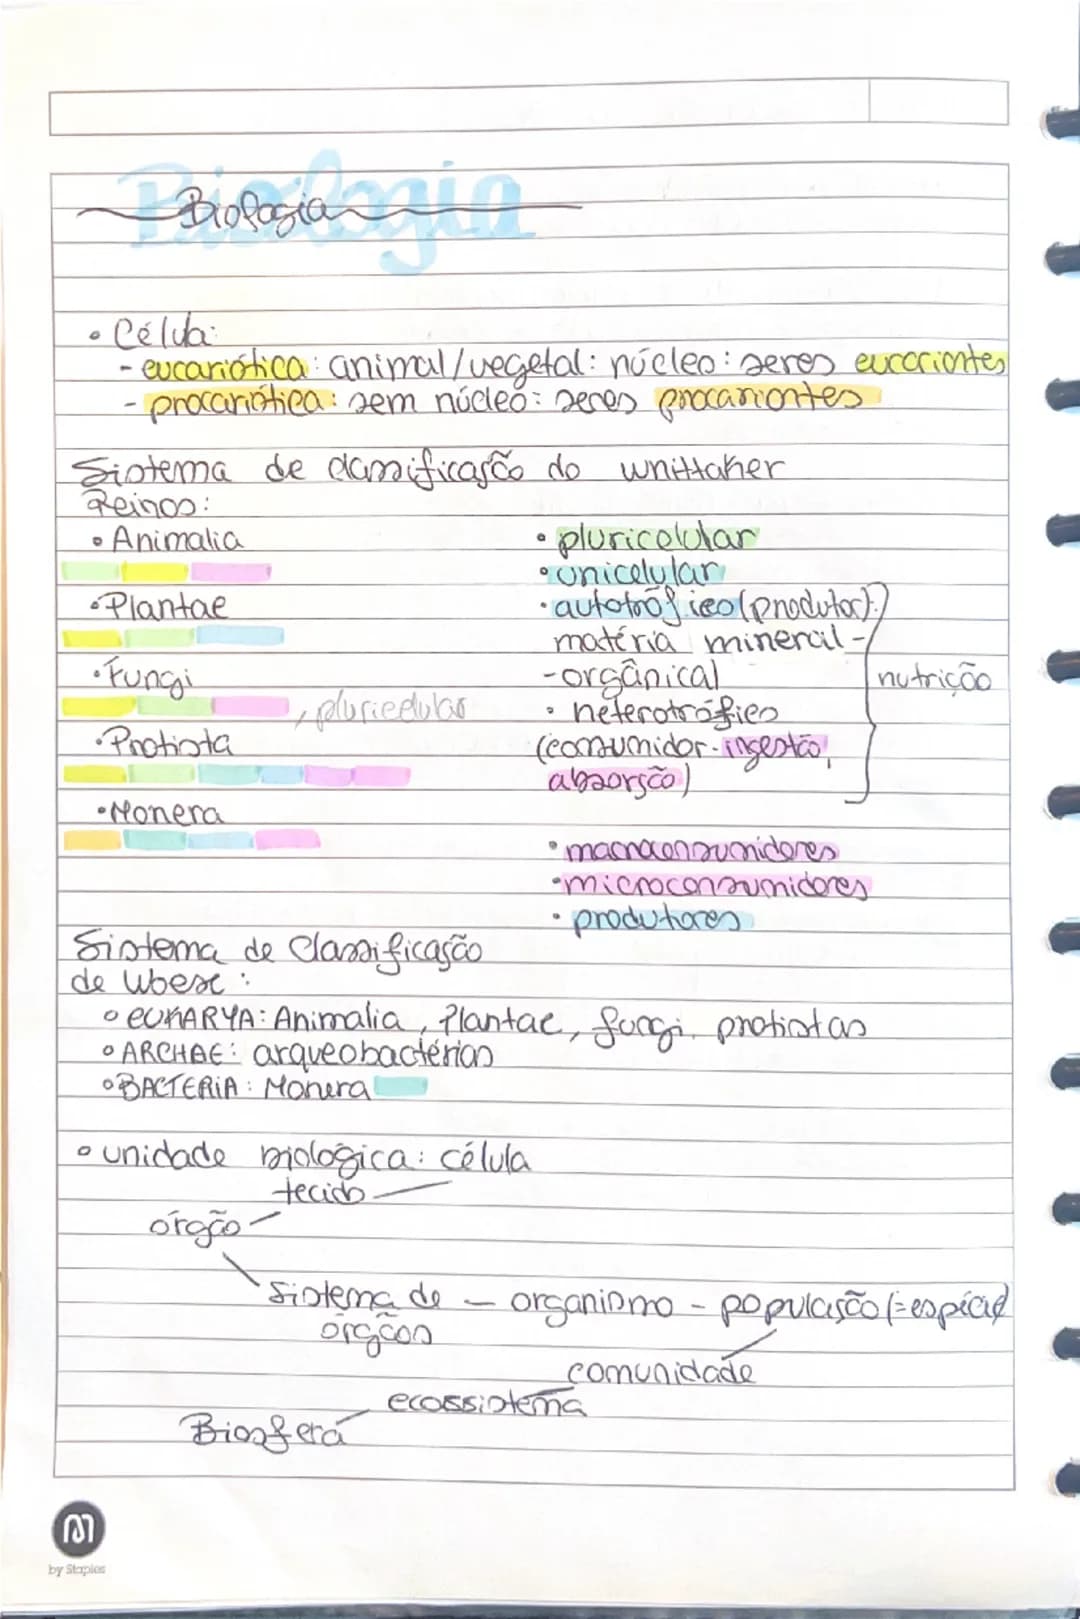 Biologia
Biologia
• Célula:
- eucariótica: animal/vegetal: núcleo: seres eucariontes
- procariótica: sem núcleo: seres procariontes
Sistema de classificação do Whittaker
Reinos:
• Animalia
• Plantae
• Fungi
, pluricelular
• Protista
• Monera
• pluricelular
• unicelular
• autotrófico (produtor):
matéria mineral -
- orgânica)
• heterotrófico
(consumidor - ingestão,
absorção)
nutrição
• macroconsumidores
• microconsumidores
• produtores
Sistema de Classificação
de Woese:
• EUKARYA: Animalia, Plantae, fungi, protistas
• ARCHAE: arqueobactérias
• BACTERIA: Monera
• unidade biológica: célula
tecido
órgão
sistema de - organismo - população (=espécie)
órgãos
comunidade
ecossistema
Biosfera
by Staples